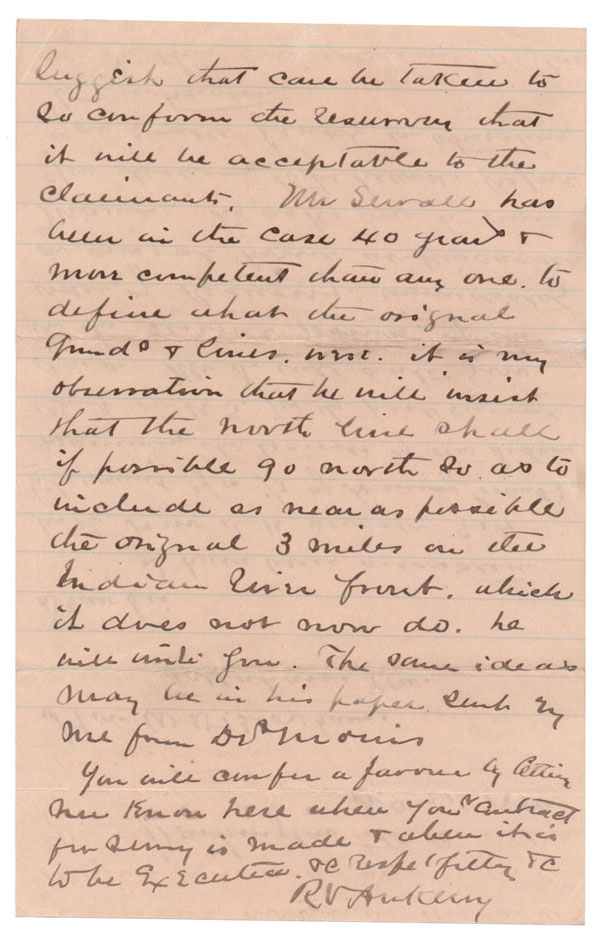 suggest that care be taken to
so conform the resurvey that
it will be acceptable to the
claimants. Mr Sewall has
been in the case 40 years &
more competent than any one. to
define what the original
bounds & lines. were. it is my
observation that he will insist
that the north line shall
if possible go north so as to
include as near as possible
the original 3 miles on the
Indian River front. which
it does not now do. he
will write you. The same ideas
may be in his paper sent by
me from Des Moines
You will confer a favour by letting
me know here when your contract
for survey is made & when it is
to be Executed. &c respectfully &c
R V Ankeny